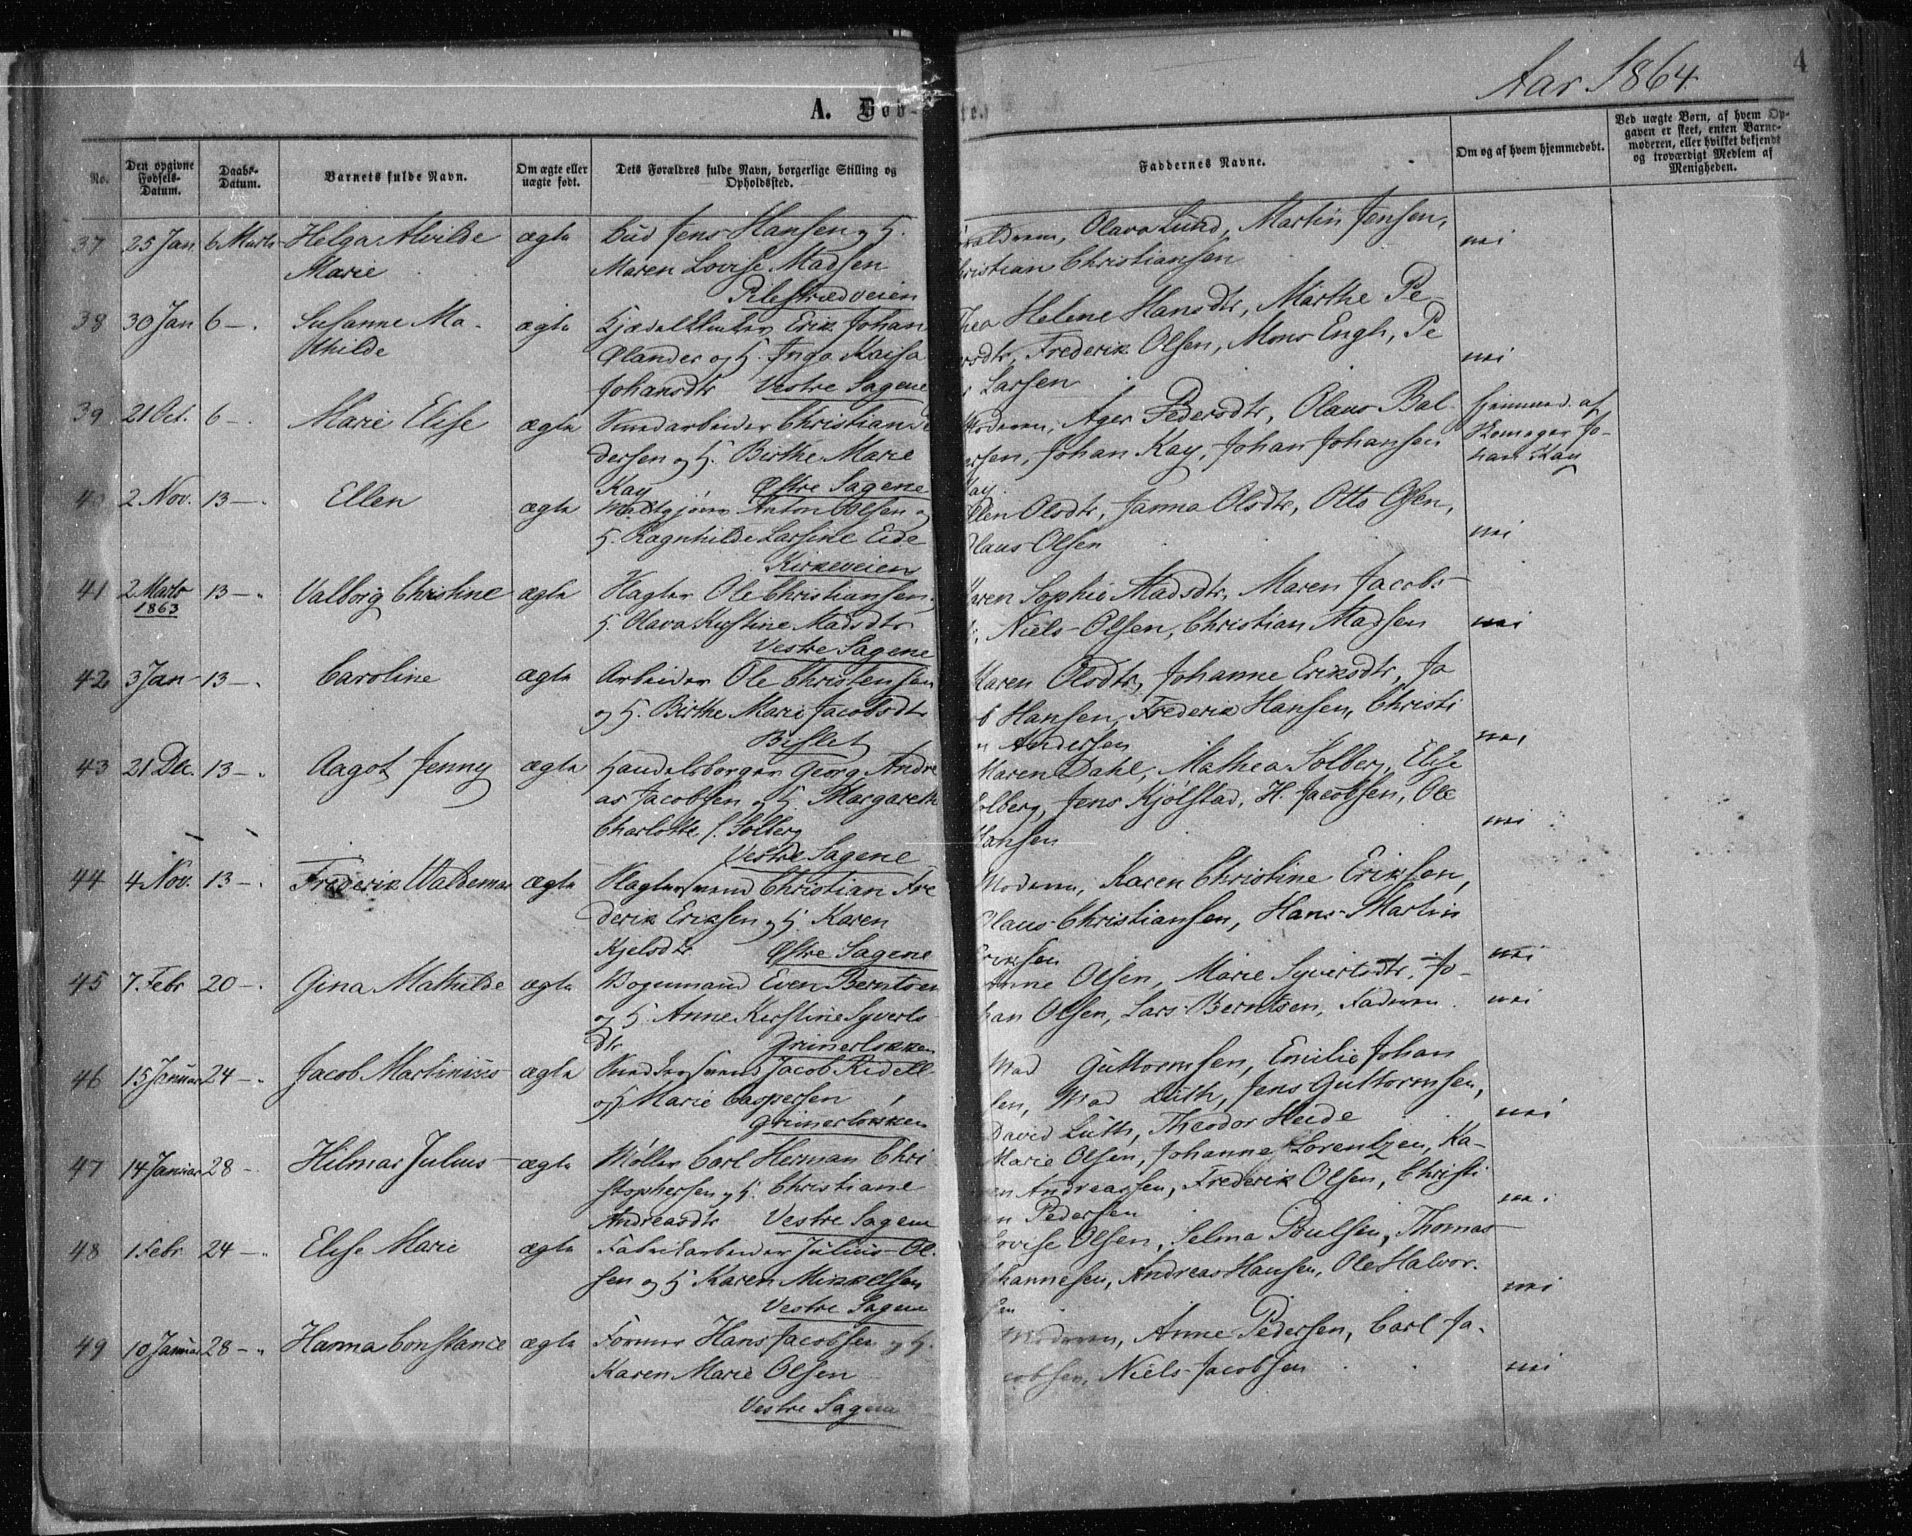 Aar 1864.
4
A. Døb-
te.
No.
Den opgivne Fødsels-Datum.
Daabs-Datum.
Barnets fulde Navn.
Om ægte eller uægte født.
Dets Forældres fulde Navn, borgerlige Stilling og Opholdssted.
Faddernes Navne.
Om og af hvem hjemmedøbt.
Ved uægte Børn, af hvem Opgaven er skeet, enten Barnemoderen, eller hvilket bekjendt og troværdigt Medlem af Menigheden.
37 25 Jan 6 Marts Helga Alvilde ægte Bud Jens Hansen og H.
Marie Maren Lovise Madsen
Pilestrædveien
Olava Lund, Martin Jensen,
Christian Christiansen nei
38 30 Jan 6 Susanne Ma- ægte Erik Johan
thilde Ølander og H. Inga Kaisa
Johansdtr Vestre Sagene
Thea Helene Hansdtr, Marthe Pe-
Frederik Olsen, Mons Engh, Pe
Larsen nei
39 21 Oct. 6 Marie Elise ægte Christian Pe
dersen og H. Birthe Marie
Kay Østre Sagene
Moderen, Pedersdtr, Olaus Bal-
Johan Kay, Johan Johansen
Kay
hjemmed. af
Skomager Jo-
han Kay
40 2 Nov. 13 Ellen ægte Anton Olsen og
H. Ragnhilde Larsine Eide
Kirkeveien
Ellen Olsdtr, Janna Olsdtr, Otto Olsen,
Olaus Olsen nei
41 2 Marts 1863 13 Valborg Christine ægte Ole Christiansen,
H. Olava Kirstine Madsdtr
Vestre Sagene
Karen Sophie Madsdtr, Maren Jacobs-
Niels Olsen, Christian Madsen nei
42 3 Jan 13 Caroline ægte Arbeider Ole Christensen
og H. Birthe Marie Jacobsdtr
Bislet
Karen Olsdtr, Johanne Eriksdtr, Ja
Hansen, Frederik Hansen, Christi
Andersen nei
43 21 Dec. 13 Aagot Jenny ægte Handelsborger Georg Andre
as Jacobsen og H. Margarethe
Charlotte f. Solberg
Vestre Sagene
Maren Dahl, Mathea Solberg, Elise
Solberg, Jens Kjølstad, H. Jacobsen, Ole
Hansen nei
44 4 Nov. 13 Frederik Waldemar ægte Christian Fre
derik Eriksen og H. Karen
Kjelsdtr Østre Sagene
Moderen, Karen Christine Eriksen,
Olaus Christiansen, Hans Martin
Eriksen nei
45 7 Febr 20 Gina Mathilde ægte Bogenmand Even Berntsen
og H. Anne Kirstine Syverts-
dtr Grünerløkken
Anne Olsen, Marie Syvertsdtr, Jo-
han Olsen, Lars Berntsen, Faderen. nei
46 15 Januar 24 Jacob Martinius ægte Jacob Ridell
og H Marie Caspersen
Grünerløkken
Mad Guttormsen, Emilie Johan
sen, Mad Lüth, Jens Guttormsen,
David Lüth, Theodor Heide nei
47 14 Januar 28 Hilmar Julius ægte Møller Carl Herman Chri
stophersen og H. Christiane
Andreasdtr Vestre Sagene
Marie Olsen, Johanne Lorentzen, Ka-
ren Andreassen, Frederik Olsen, Christi
an Pedersen nei
48 1 Febr 24 Elise Marie ægte Fabrikarbeider Julius Ol-
sen og H Karen Mikkelsen
Vestre Sagene
Lovise Olsen, Selma Poulsen, Thomas
Johannesen, Andreas Hansen, Ole Halvor-
sen nei
49 10 Januar 28 Hanna Constance ægte Former Hans Jacobsen og H.
Karen Marie Olsen
Vestre Sagene
Moderen, Anne Pedersen, Carl Ja-
cobsen, Niels Jacobsen nei